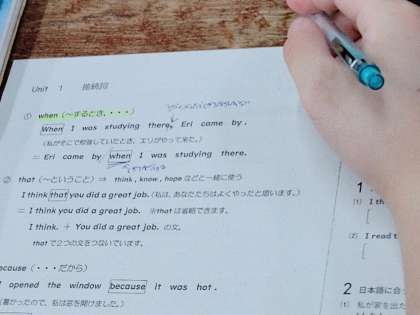 Unit 1 接続詞
① when (〜するとき,・・・)
When I was studying there, Eri came by.
(私がそこで勉強していたとき、エリがやって来た。)
= Eri came by when I was studying there.
② that (〜ということ) ⇒ think, know, hope などと一緒に使う
I think that you did a great job. (私は、あなたたちはよくやったと思います。)
= I think you did a great job. ※that は省略できます。
I think. + You did a great job. の文。
that で2つの文をつないでいます。
ecause (・・・だから)
opened the window because it was hot.
(暑かったので、私は窓を開けました。)
1
(1) I th
(2) I read t
2 日本語に合
(1) 私が家を出た